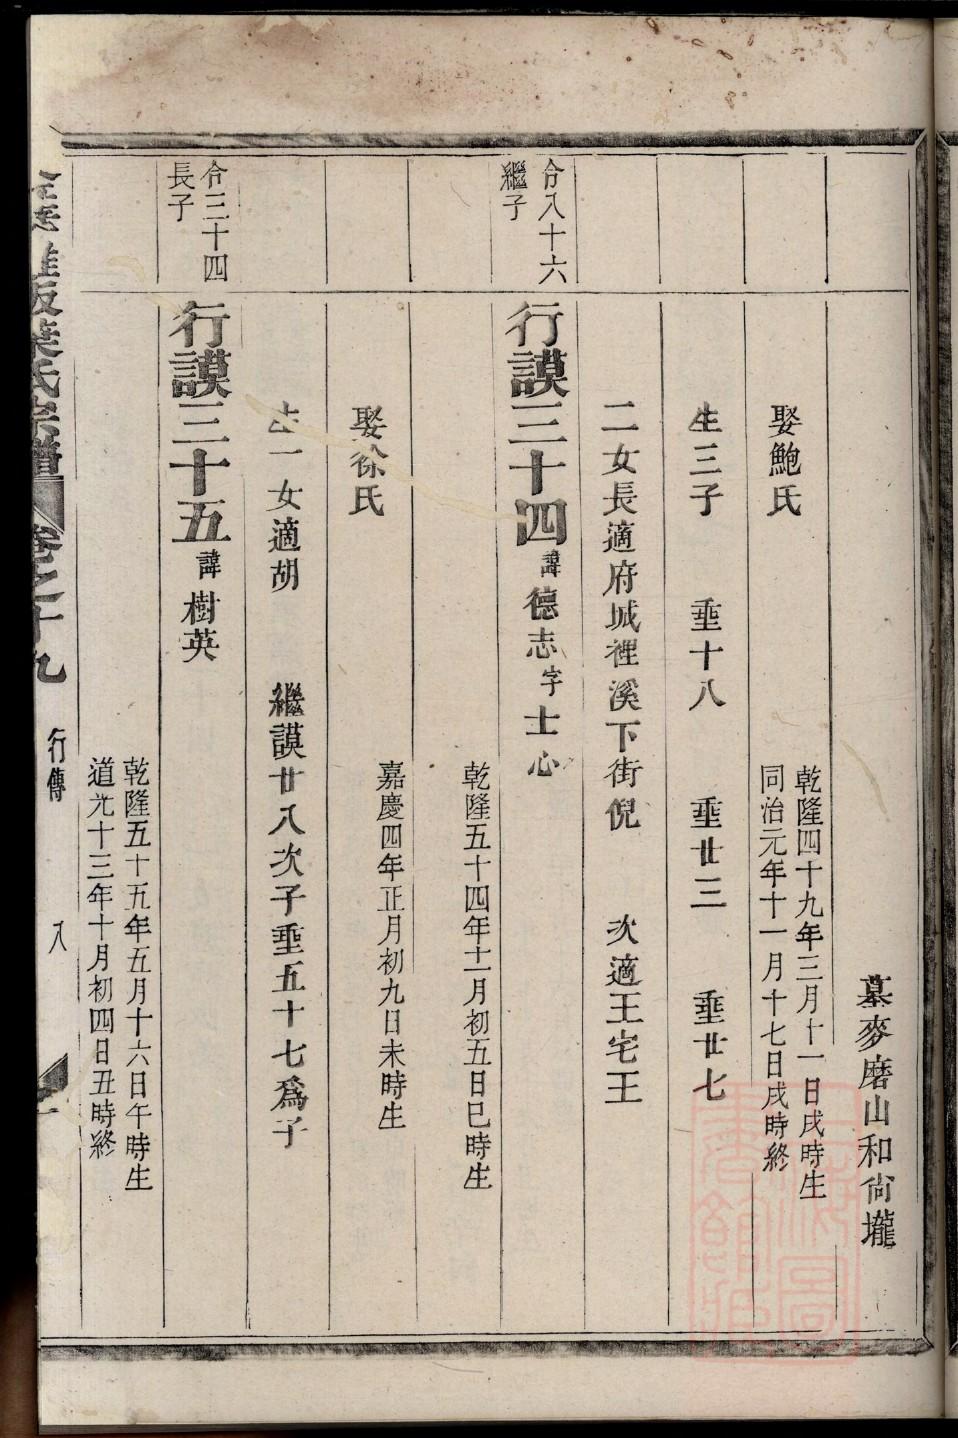 墓麥磨山和尙壠
娶鮑氏
乾隆四十九年三月十一日戌時生
同治元年十一月十七日戌時終
生三子 垂十八 垂廿三 垂廿七
二女長適府城裡溪下街倪 次適王宅王
仝八十六
繼子
行謨三十四諱德志字士心
乾隆五十四年十一月初五日巳時生
娶徐氏
嘉慶四年正月初九日未時生
生一女適胡 繼謨廿八次子垂五十七爲子
仝三十四
長子
行謨三十五諱樹英
乾隆五十五年五月十六日午時生
道光十三年十月初四日丑時終
葉氏宗譜 卷之十九 行傳 八